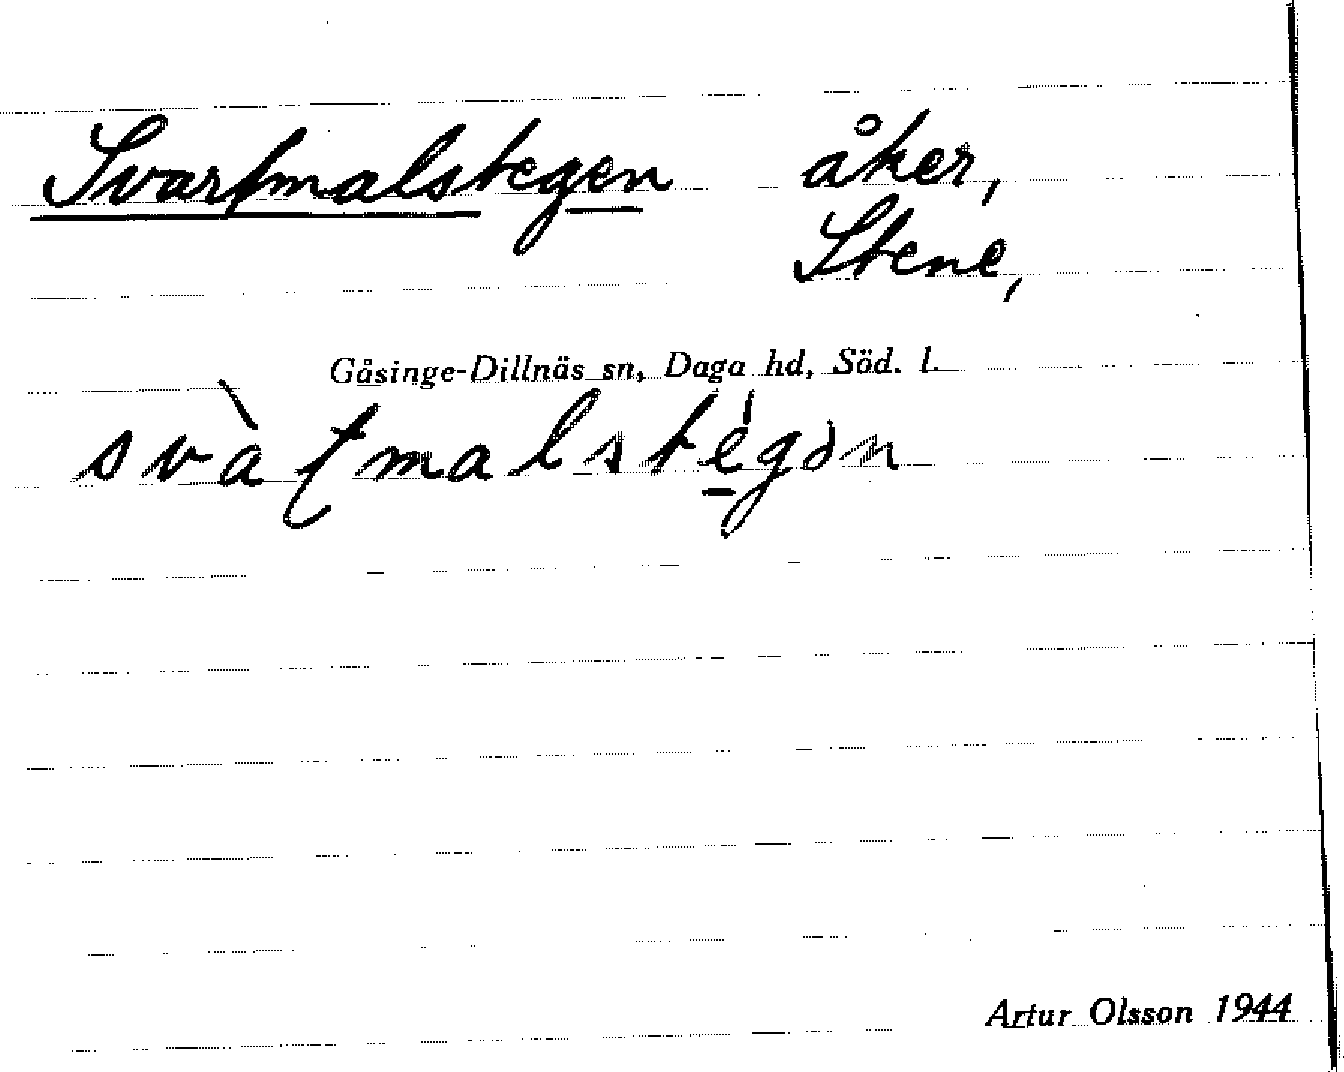 Svartmalstegen åker,
Stene,
Gåsinge-Dillnäs sn, Daga hd, Söd. l.
svàʈmalstégən
Artur Olsson 1944